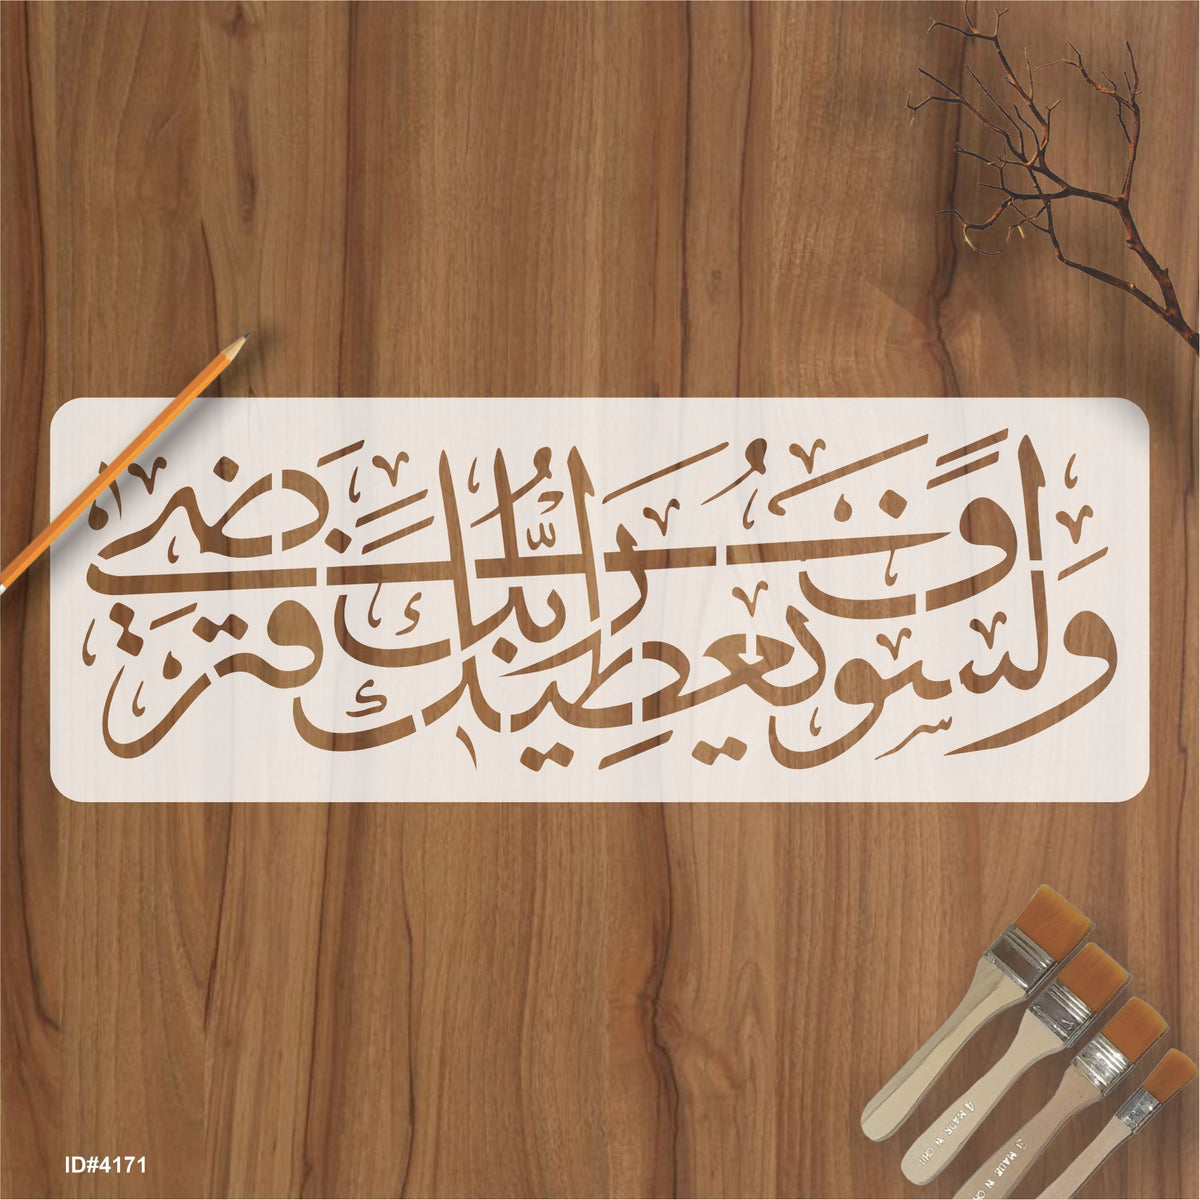 ولسوف يعطيك ربك فترضى
ID#4171
4 MADE IN CHI
3 MADE IN C